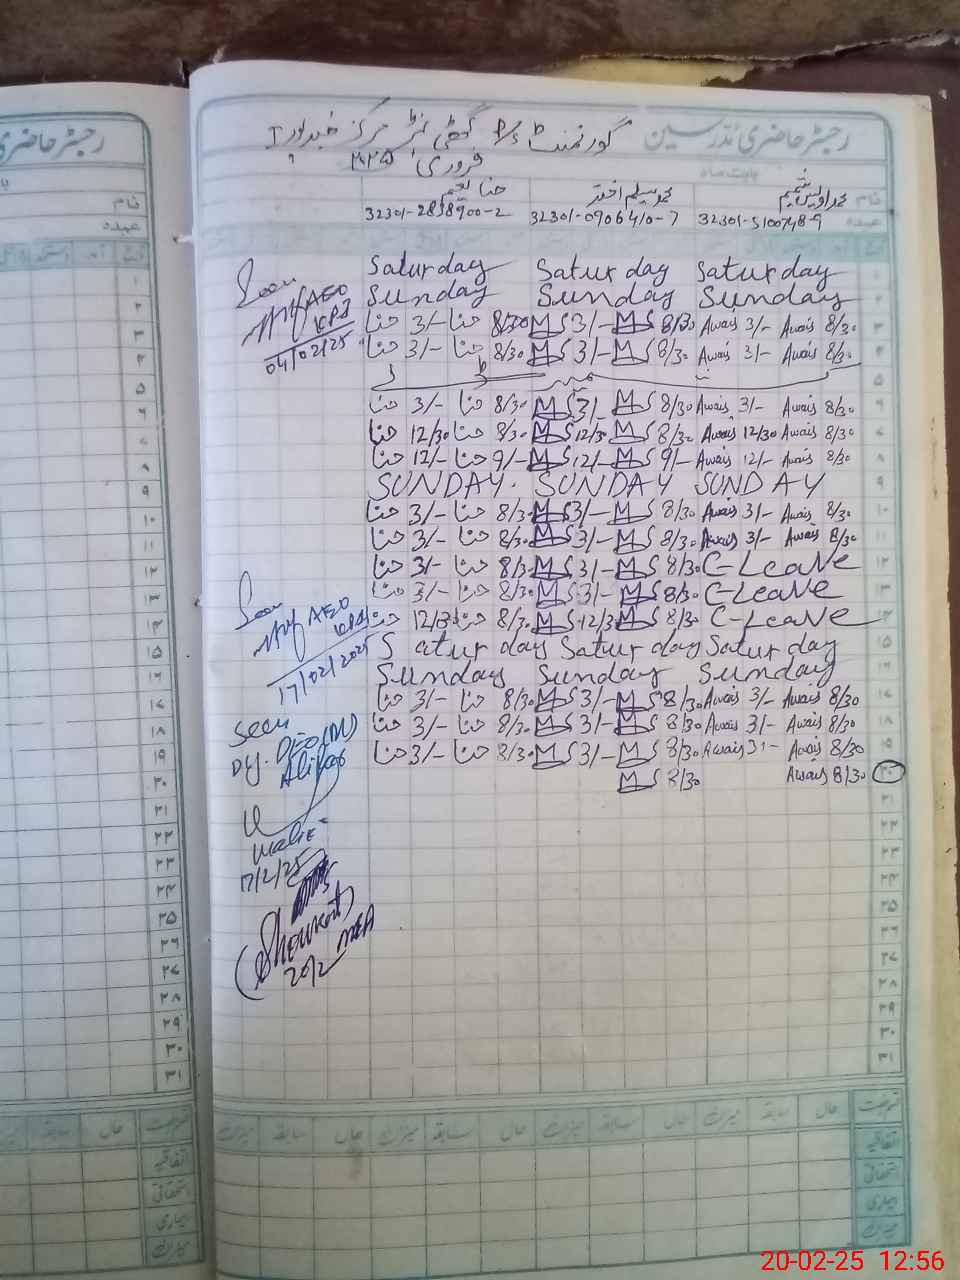 رجسٹر حاضری مدرسین گورنمنٹ P/S مرکز I
بابت ماہ فروری
نام محمد اویس شمیم محمد وسیم اختر حنا نعیم
عہدہ 32301-5100748-9 32301-0906410-7 32301-2838900-2
Saturday Saturday Saturday
Sunday Sunday Sunday
حنا 3/- حنا 8/30 MS 3/- MS 8/30 Awais 3/- Awais 8/30 ۳
حنا 3/- حنا 8/30 MS 3/- MS 8/30 Awais 3/- Awais 8/30 ۴
۵
حنا 3/- حنا 8/30 MS 3/- MS 8/30 Awais 3/- Awais 8/30 ۶
حنا 12/30 حنا 8/30 MS 12/30 MS 8/30 Awais 12/30 Awais 8/30 ۷
حنا 12/- حنا 9/- MS 12/- MS 9/- Awais 12/- Awais 8/30 ۸
SUNDAY. SUNDAY SUNDAY ۹
حنا 3/- حنا 8/30 MS 3/- MS 8/30 Awais 3/- Awais 8/30 ۱۰
حنا 3/- حنا 8/30 MS 3/- MS 8/30 Awais 3/- Awais 8/30 ۱۱
حنا 3/- حنا 8/30 MS 3/- MS 8/30 C-Leave ۱۲
حنا 3/- حنا 8/30 MS 3/- MS 8/30 C-Leave ۱۳
حنا 12/30 حنا 8/30 MS 12/30 MS 8/30 C-Leave ۱۴
Saturday Saturday Saturday ۱۵
Sunday Sunday Sunday ۱۶
حنا 3/- حنا 8/30 MS 3/- MS 8/30 Awais 3/- Awais 8/30 ۱۷
حنا 3/- حنا 8/30 MS 3/- MS 8/30 Awais 3/- Awais 8/30 ۱۸
حنا 3/- حنا 8/30 MS 3/- MS 8/30 Awais 3/- Awais 8/30 ۱۹
MS 8/30 Awais 8/30 ۲۰
۲۱
۲۲
۲۳
۲۴
۲۵
۲۶
۲۷
۲۸
۲۹
۳۰
۳۱
Seen
AEO
KPI
04/02/25
Seen
AEO
KPI
17/02/2025
Seen
Dy. DEO
17/2/25
(Showkat)
MEA
20/2
حال سابقہ میزان حال سابقہ میزان حال سابقہ میزان
اتفاقیہ
استحقاقی
بیماری
میزان
رجسٹر حاضری
نام
عہدہ
20-02-25 12:56